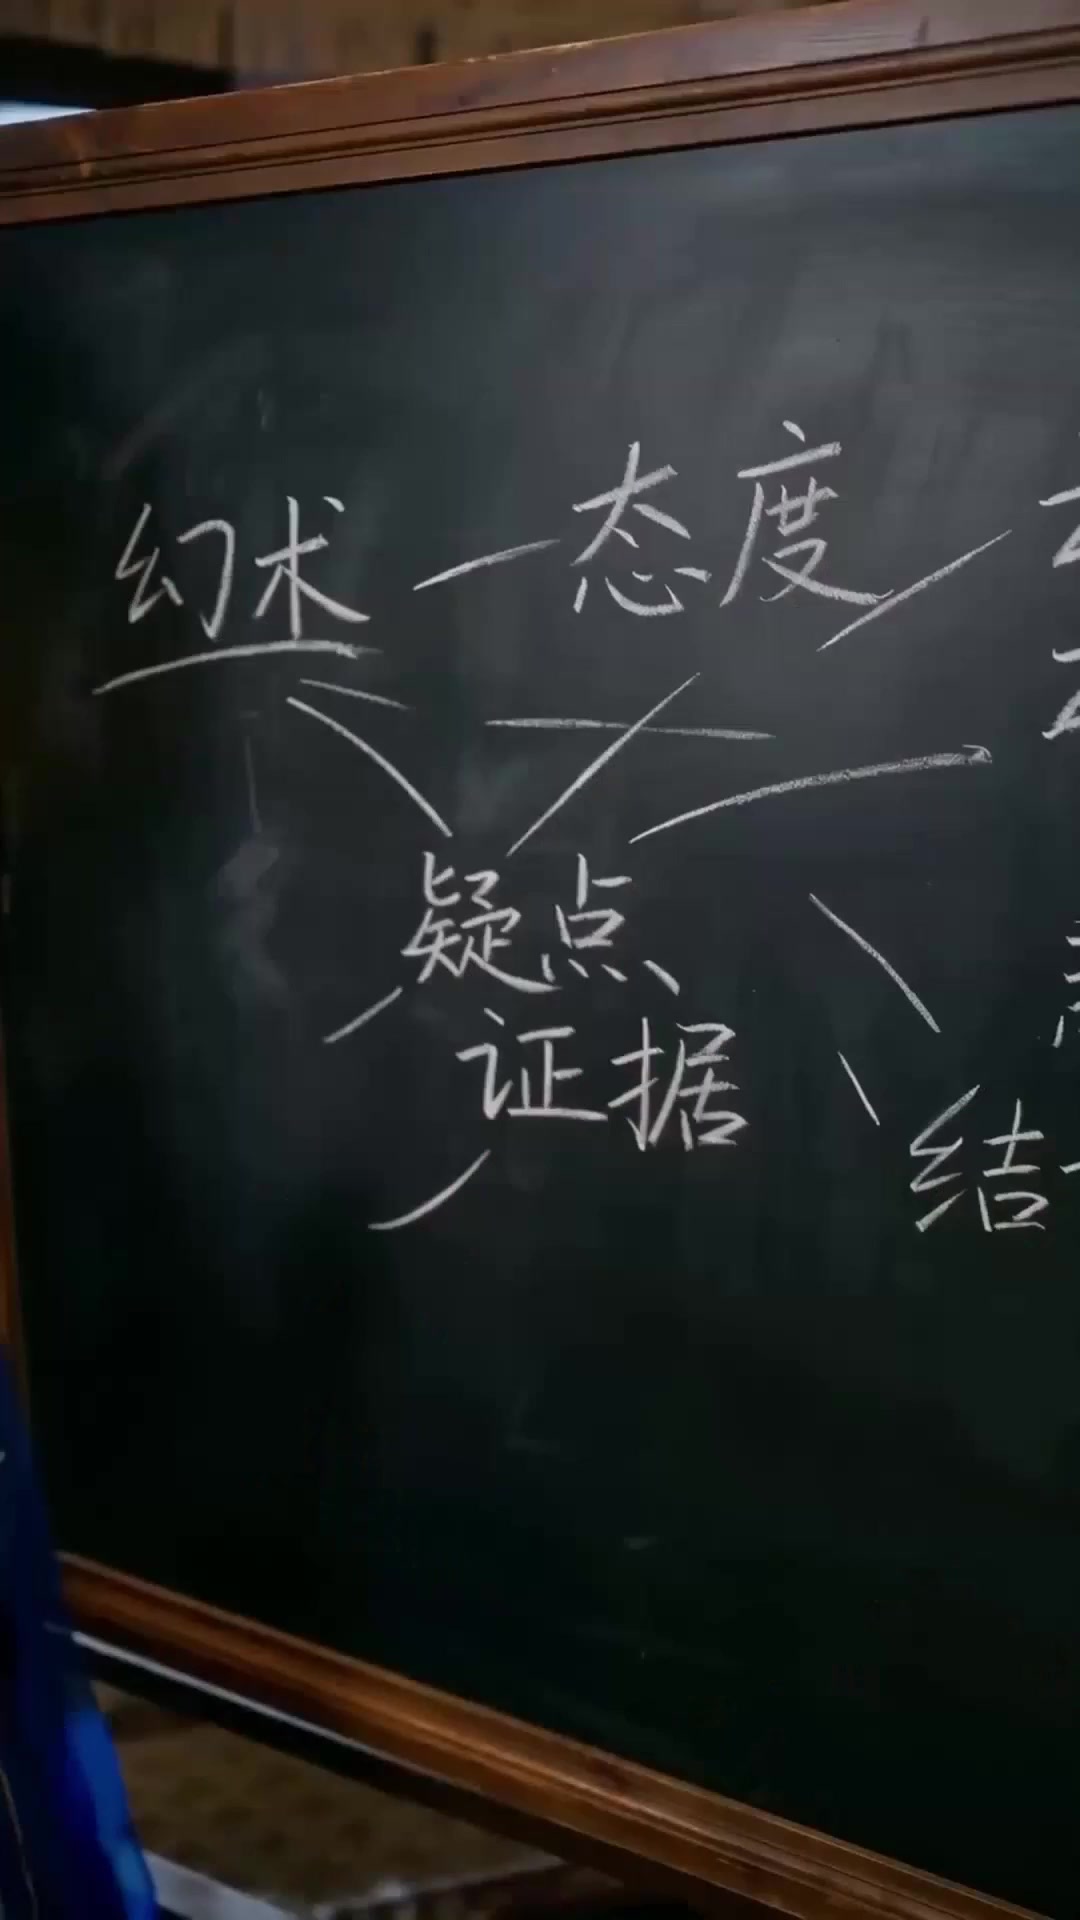 幻术
态度
疑点
证据
结